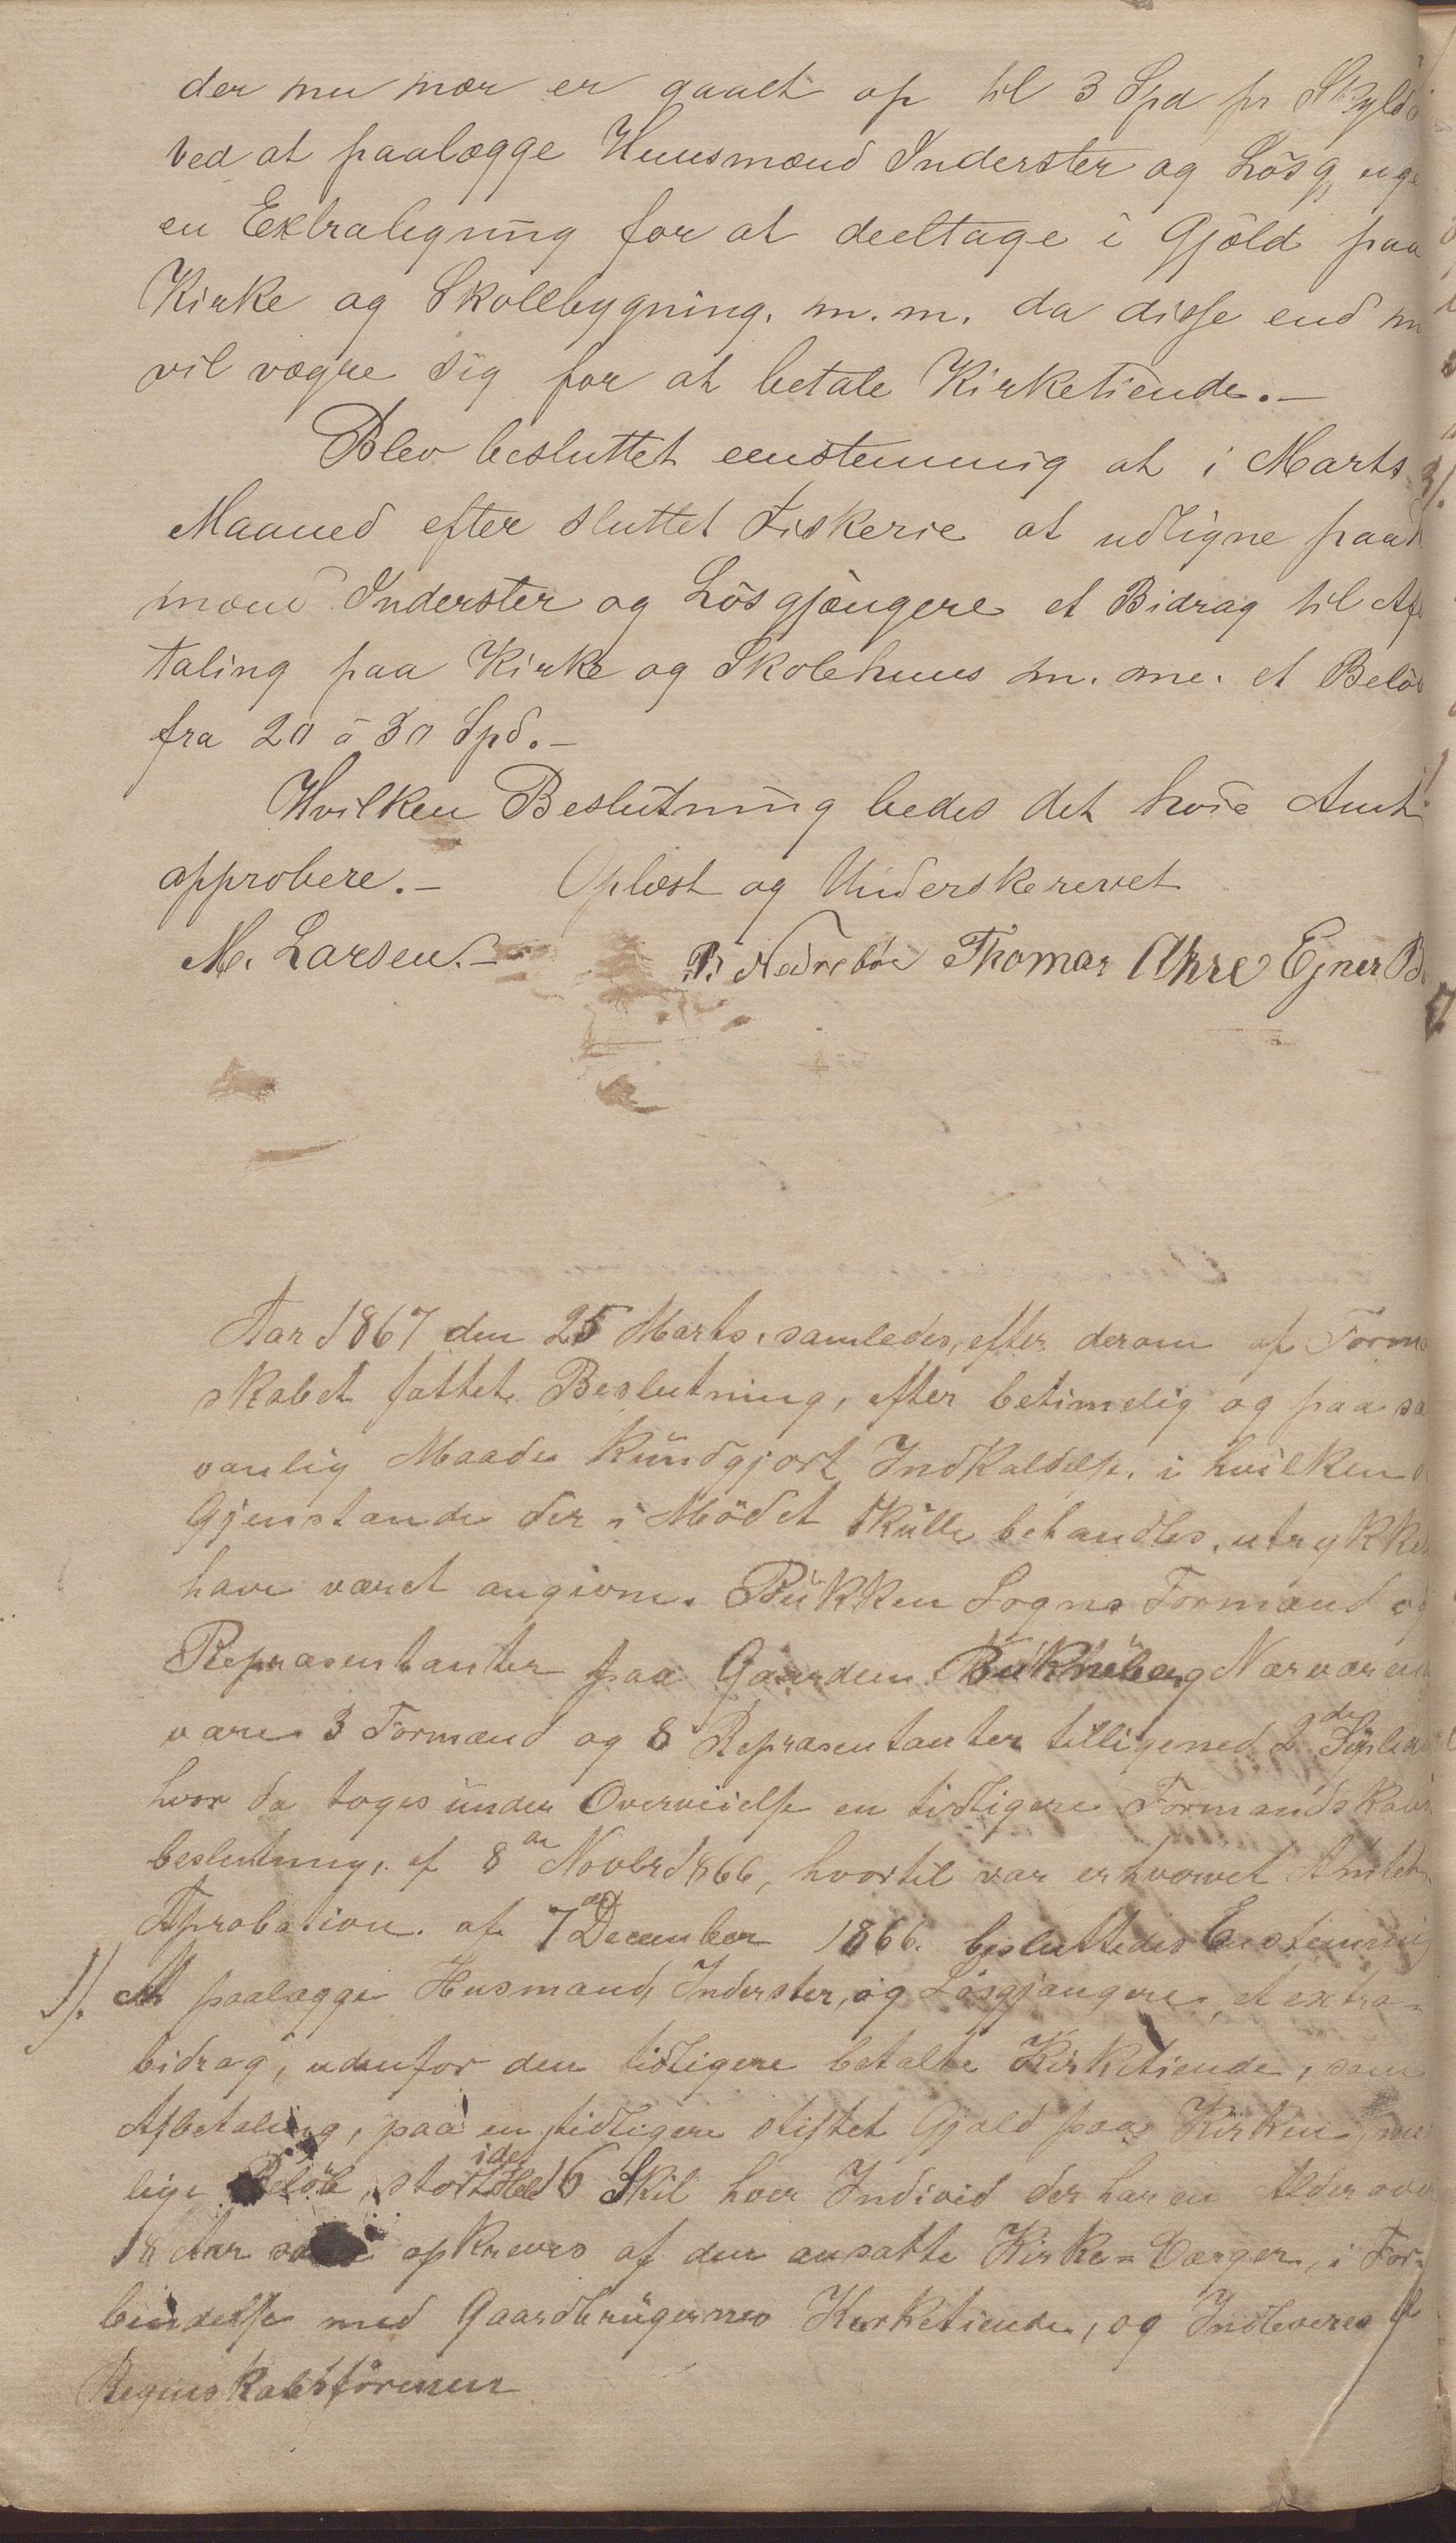 der nu nær er gaaet op til 3 Spd pr Skyldd
ved at paalægge Huusmænd Inderster og Lösgj
en Extraligning for at deeltage i Gjæld paa
Kirke og Skolebygning. m. m. da disse end
vil vægre sig for at betale Kirketiende.–
Blev besluttet eenstemmig at i Marts
Maaned efter sluttet Fiskerie at udligne paa
mænd Inderster og Lösgjængere et Bidrag til Af
taling paa Kirke og Skolehuus m. m. et Belöb
fra 20 á 30 Spd.–
Hvilken Beslutning bedes det höie Amt
approbere.– Oplæst og Underskrevet
M. Larsen.– B. Nedrebøe Thomas Ahre Ejner B
Aar 1867 den 25 Marts, samledes, efter derom af Form
skabet fattet Beslutning, efter betimelig og paa sæ
vanlig Maade Kundgjort Indkaldelse, i hvilken
Gjenstande der i Mödet skulle behandles, utrykke
have været angivne. Bukken Sogns Formænd og
Repræsentanter paa Gaarden Nærværen
vare 3 Formænd og 8 Repræsentanter tilligemed 2de
hvor da toges under Overveielse en tidligere Formandskabs
beslutning, af 8de Novbr 1866, hvortil var erhvervet Amtets
Aprobation. af 7de December 1866. besluttedes Enstemmig
1/. At paalægge Husmænd, Inderster, og Lösgjængere, et extra-
bidrag, udenfor den tidligere betalte Kirketiende, som
Afbetaling, paa en tidligere stiftet Gjæld paa Kirken,
lige Belöb, stort idet 16 Skil hver Individ der har en Alder over
18 Aar opkræves af den ansatte Kirke=Værger, i For=
bindelse med Gaardbrugernes Kirketiende, og Indleveres
Regnskabsföreren